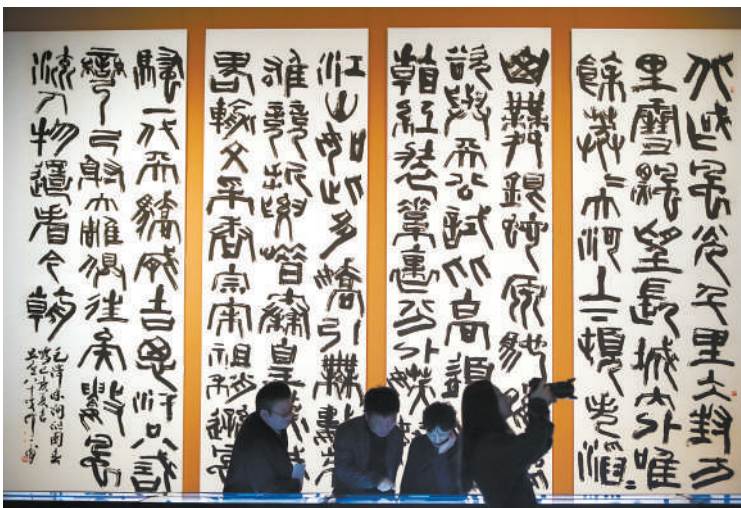 北國風光千里冰封万
里雪飄望長城內外唯
餘莽=大河上下頓失滔
山舞銀蛇原馳
欲與天公試比高須
紅裝素裹分外妖
江山如此多嬌引無數
雄競折腰惜秦皇
略輸文采唐宗宋祖稍遜風
騷一代天驕成吉思汗只識
彎弓射大雕俱往矣數風
流人物還看今朝
毛澤東詞沁園春